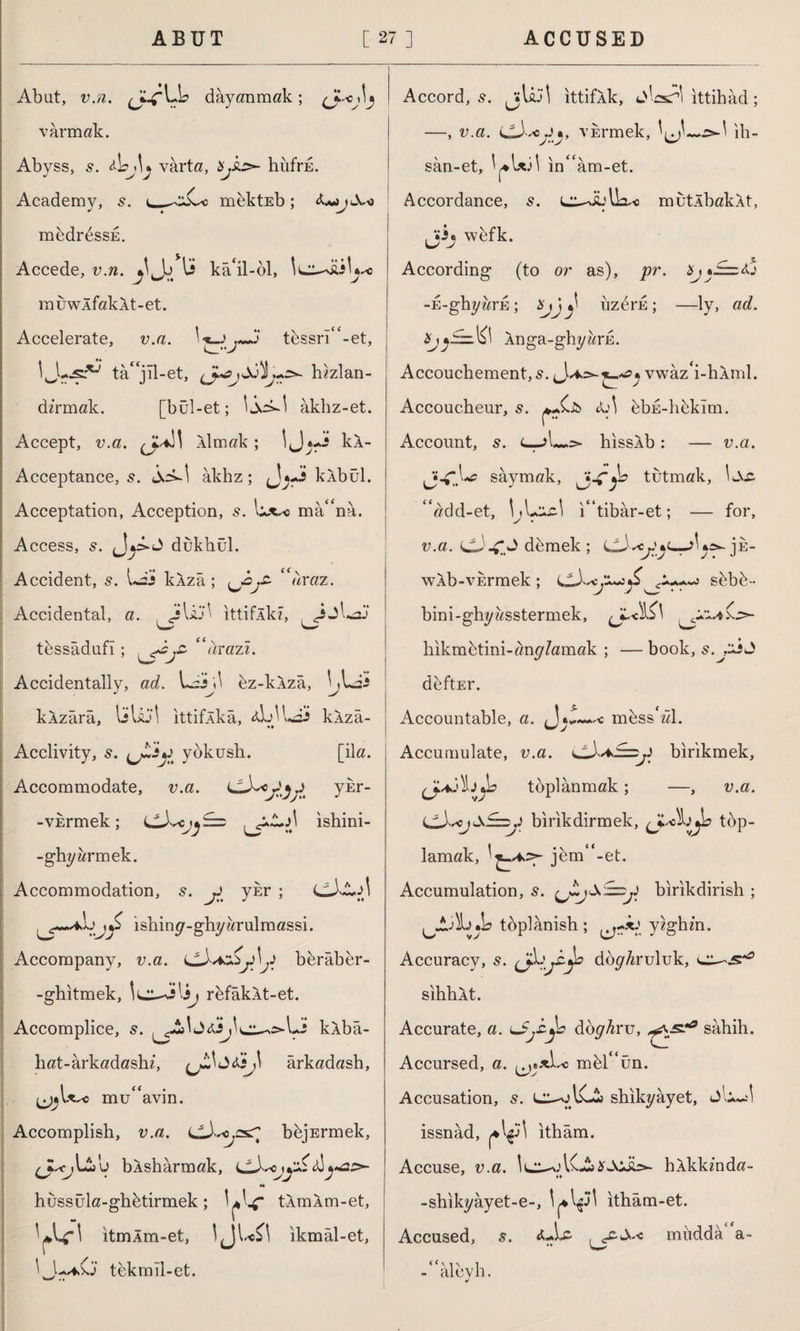 ABUT [ 27 ] ACCUSED
Abut, v.n. طيانمق dàyanmak; وارمق
vàrmak.
Abyss, s. وارطه vàrta, حفره hùfrE.
Academy, s. مكتب mèktEb; مدرسه
mèdréssE.
Accede, v.n. قائل اولـ kāʿil-òl, موافقت ا
mùwAfakAt-et.
Accelerate, v.a. تسريع ا tèssrīʿʿ-et,
تعجيل ا tàʿʿjīl-et, حيزلانديرمق hizlan-
dirmak. [būl-et; اخذ ا àkhz-et.
Accept, v.a. المق Almak; قبول ا kA-
Acceptance, s. اخذ àkhz; قبول kAbūl.
Acceptation, Acception, s. معنا màʿʿnà.
Access, s. دخول dùkhūl.
Accident, s. قضا kAzā; عرض ʿʿàraz.
Accidental, a. اتفاقى ìttifAkī, تصادفى
tèssādufī; عرضى ʿʿàrazī.
Accidentally, ad. از قضا èz-kAzā, قضارا
kAzārā, اتفاقا ìttifAkā, قضا ايله kAzā-
Acclivity, s. يوقوش yòkush. [ila.
Accommodate, v.a. ير ويرمك yEr-
-vErmek; ايشنى كورمك ìshini-
-ghyùrmek.
Accommodation, s. ير yEr; ايشنك
كورلمسى ìshing-ghyùrulmassi.
Accompany, v.a. برابر كيتمك bèrāber-
-ghìtmek, رفاقت ا rèfākAt-et.
Accomplice, s. قباحت ارقداشى kAbā-
hat-àrkadashi, ارقداش ārkadash,
معاون muʿʿavin.
Accomplish, v.a. بجرمك bèjErmek,
باشارمق bAshàrmak, حصوله كتورمك
hùssūla-ghètirmek; تمام ا tAmAm-et,
اتمام ا ìtmAm-et, اكمال ا ìkmāl-et,
تكميل ا tèkmīl-et.
Accord, s. اتفاق ìttifAk, اتحاد ìttihàd;
—, v.a. ويرمك vErmek, احسان ا ìh-
sàn-et, انعام ا ìnʿʿàm-et.
Accordance, s. مطابقت mùtAbakAt,
وفق wèfk.
According (to or as), pr. ـه كوره
-E-ghyùrE; اوزره ùzérE; —ly, ad.
اكا كوره Anga-ghyùrE.
Accouchement, s. وضع حمل vwàzʿi-hAml.
Accoucheur, s. ابه حكيم èbE-hèkīm.
Account, s. حساب hìssAb: — v.a.
صايمق sàymak, طوتمق tùtmak, عد ا
ʿʿàdd-et, اعتبار ا ìʿʿtibàr-et; — for,
v.a. ديمك dèmek; جواب ويرمك jE-
wAb-vErmek; سببنى كوسترمك sèbè-
bini-ghyùsstermek, حكمتنى اكلامق
hìkmètini-ànglamak; — book, s. دفتر
dèftEr.
Accountable, a. مسئول mèssʿūl.
Accumulate, v.a. بريكمك bìrìkmek,
طوپلانمق tòplànmak; —, v.a.
بريكدرمك bìrìkdirmek, طوپلامق tòp-
lamak, جمع ا jèmʿʿ-et.
Accumulation, s. بريكديريش bìrìkdirish;
طوپلانيش tòplànish; ييغين yìghin.
Accuracy, s. طوغريلق dòghruluk, صحت
sìhhAt.
Accurate, a. طوغرى dòghru, صحيح sàhih.
Accursed, a. ملعون mèlʿʿūn.
Accusation, s. شكايت shikyàyet, اسناد
issnàd, اتهام ithām.
Accuse, v.a. حقنده شكايت ا hAkkinda-
-shìkyàyet-e-, اتهام ا ithām-et.
Accused, s. مدعى عليه mùddàʿʿa-
-ʿʿàlèyh.